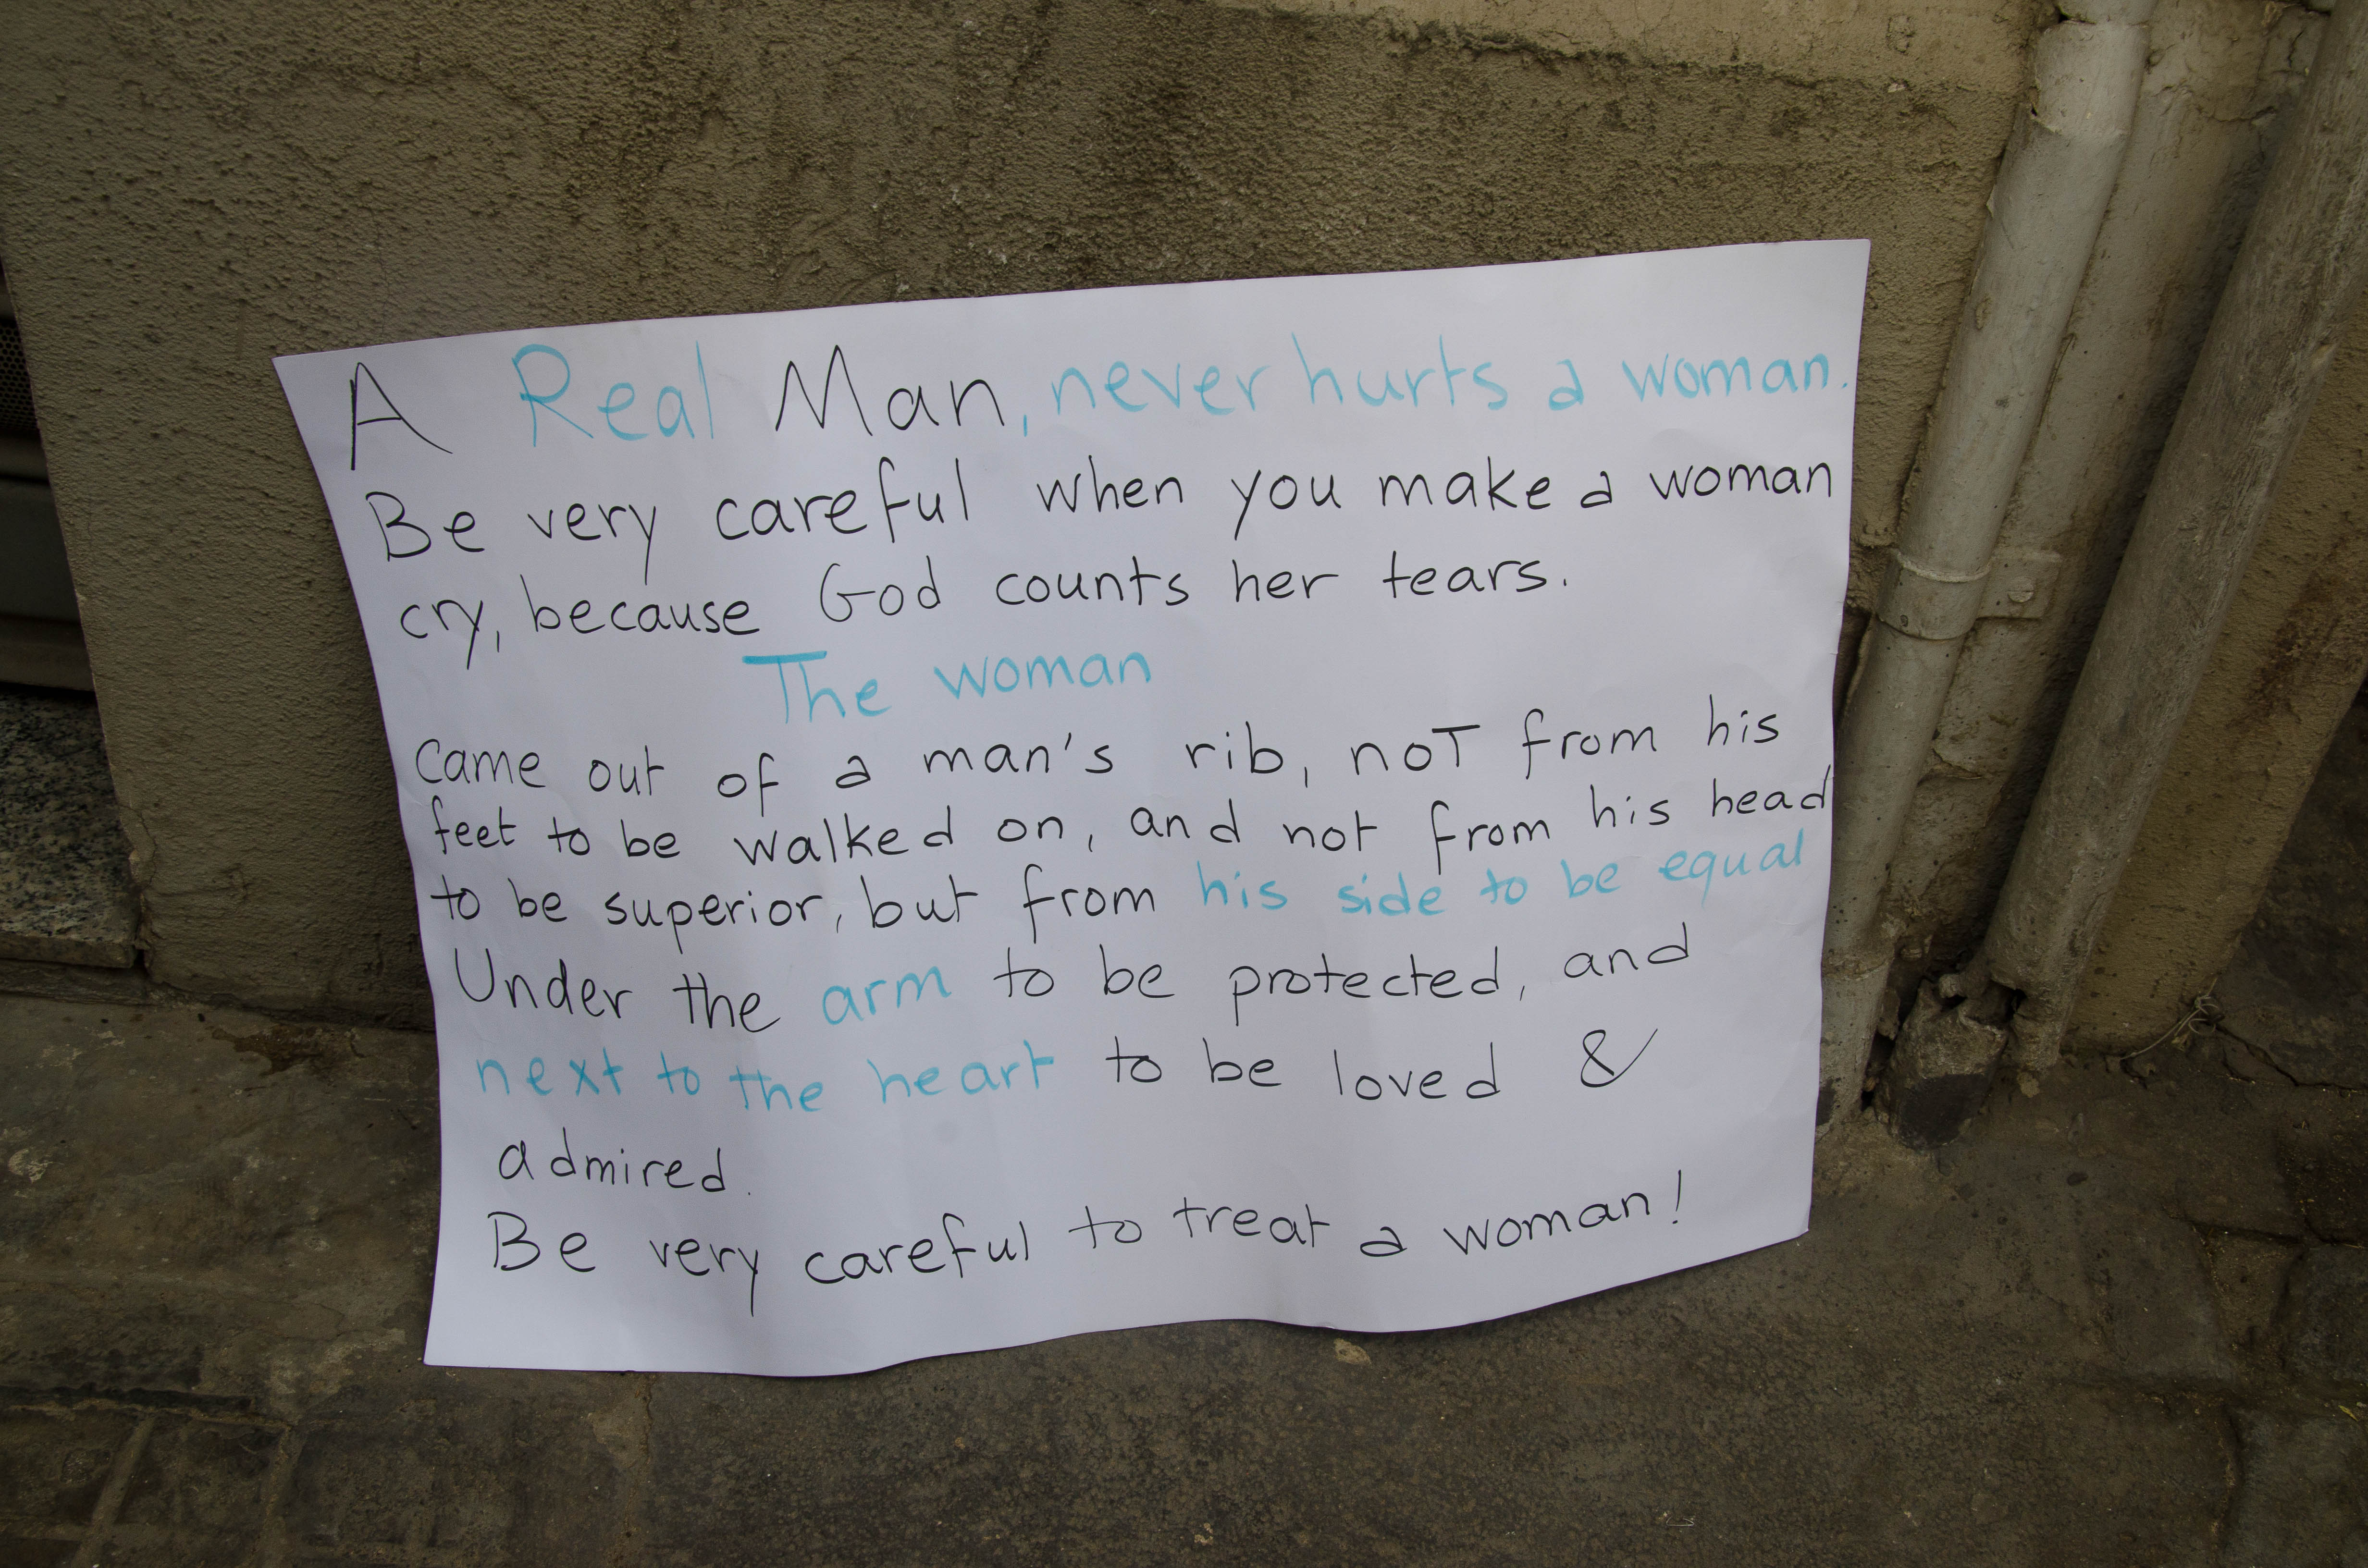 A Real Man, never hurts a woman.
Be very careful when you make a woman
cry, because God counts her tears.
The woman
Came out of a man's rib, noT from his
feet to be walked on, and not from his head
to be superior, but from his side to be equal
Under the arm to be protected, and
next to the heart to be loved &
admired.
Be very careful to treat a woman!